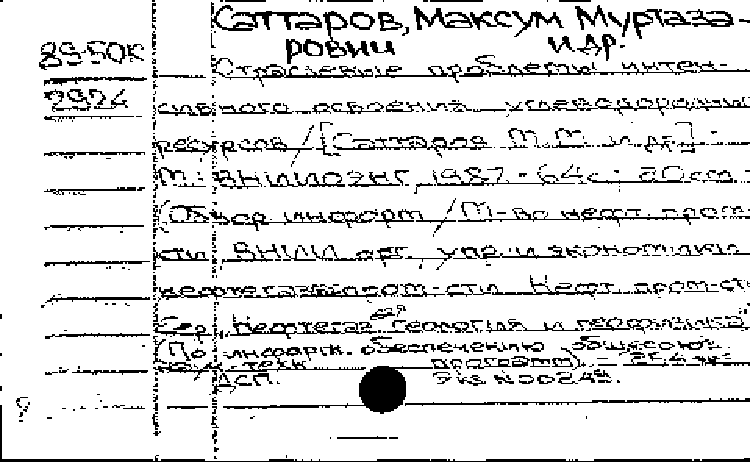 Саттаров, Максум Муртаза-
89-50к рович и др.
Отраслевые проблемы интен-
2924 сивного освоения углеводородных
ресурсов / [Саттаров М.М. и др.] -
М.: ВНИИОЭНГ, 1987. - 64с.; 20см. -
(Обзор. информ / М-во нефт. пром-
сти, ВНИИ орг., упр. и экономики
нефтегазпром-сти. Нефт. пром-сть
Сер. "Нефтегазовая геология и геофизика"
(По информ. обеспечению общесоюз.
науч.-техн. программ). -
ДСП. Экз N00242.